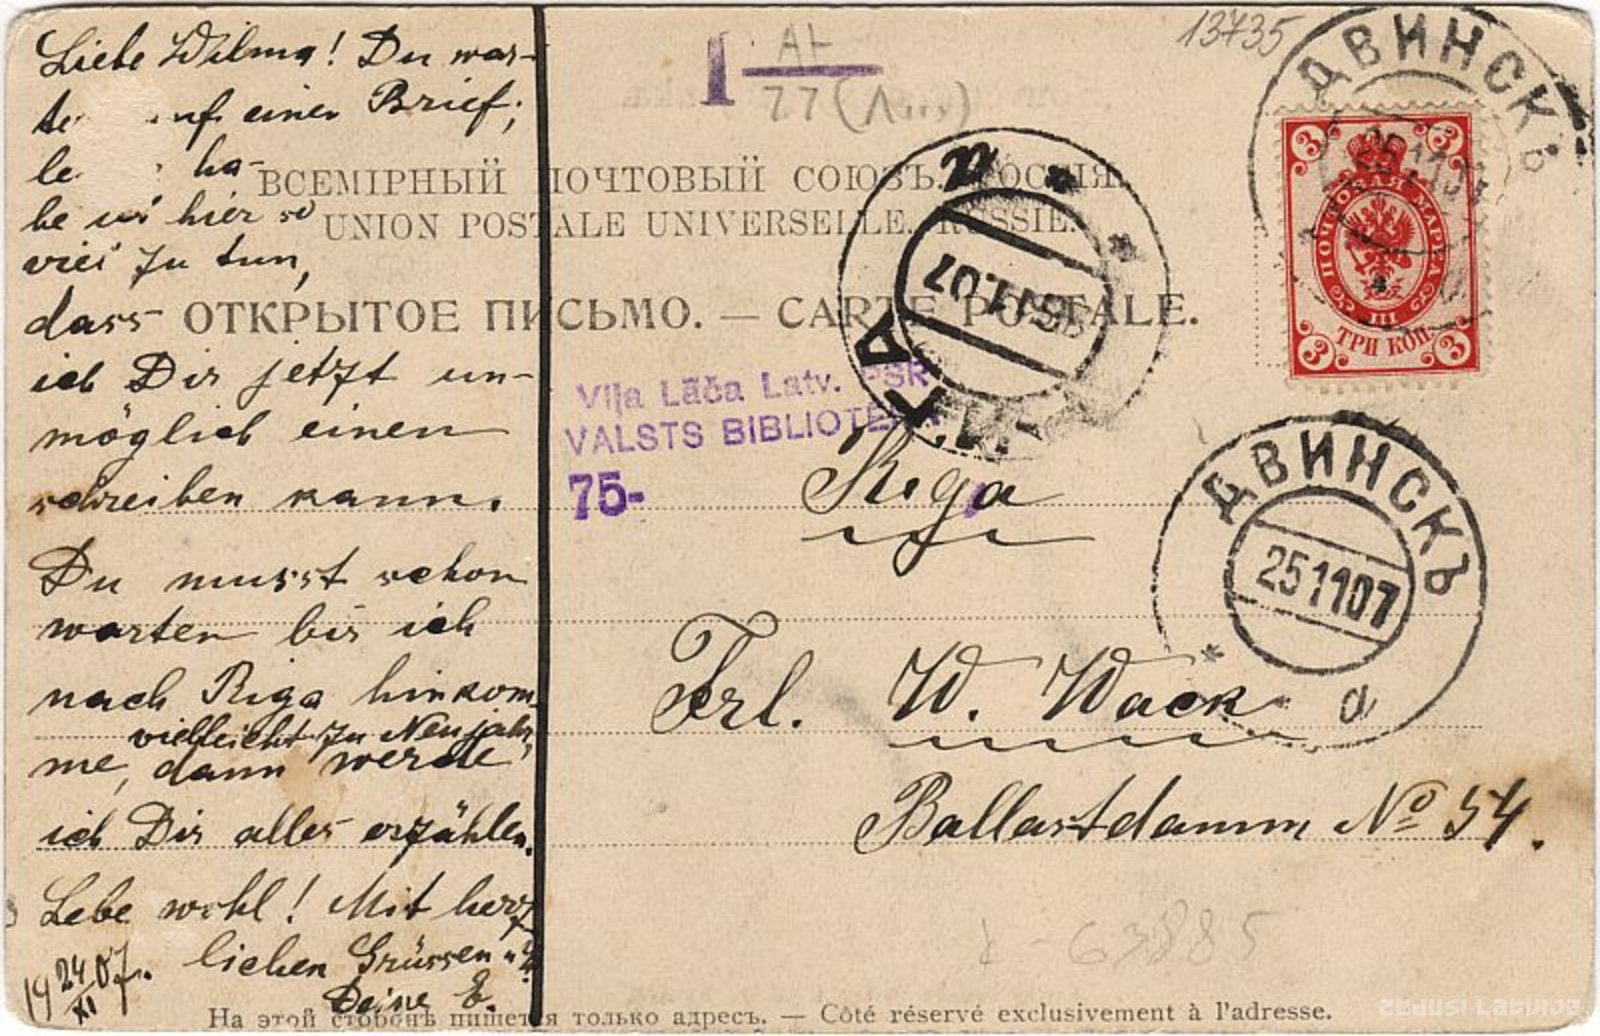 Liebe Wilma! Du war-
auf einen Brief;
ha-
be wi hier so
viel zu tun,
dass
ich Dir jetzt un-
möglich einen
schreiben kann.
Du musst schon
warten bis ich
nach Riga hinkom
vielleicht zu Neujahr,
me, dann werde
ich Dir alles erzählen.
Lebe wohl! Mit herz
lichen Grüssen
Deine E.
19 24/XI 07.
13735
I
77
ВСЕМІРНЫЙ ПОЧТОВЫЙ СОЮЗЪ. РОССІЯ.
UNION POSTALE UNIVERSELLE. RUSSIE.
ОТКРЫТОЕ ПИСЬМО. — CARTE POSTALE.
Viļa Lāča Latv. PSR
VALSTS BIBLIOTĒKA
75-
ДВИНСКЪ
3 3
ПОЧТОВАЯ МАРКА
III
ТРИ КОП.
3 3
ДВИНСКЪ
251107
а
Riga
Frl. W. Wack
Ballastdamm № 54.
63885
На этой сторонѣ пишется только адресъ. — Côté réservé exclusivement à l'adresse.
zudusi Latvija